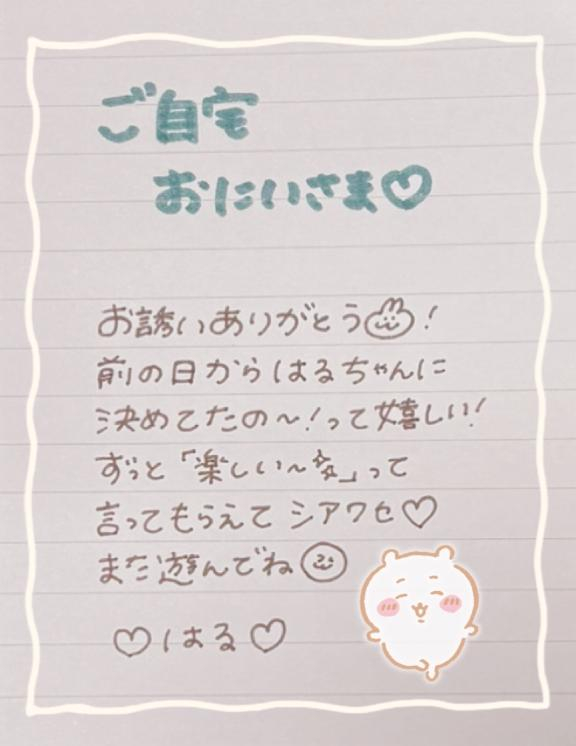 ご自宅
おにいさま♡
お誘いありがとう!
前の日からはるちゃんに
決めてたの〜!って嬉しい!
ずっと「楽しい〜☆」って
言ってもらえて シアワセ♡
また遊んでね
♡はる♡